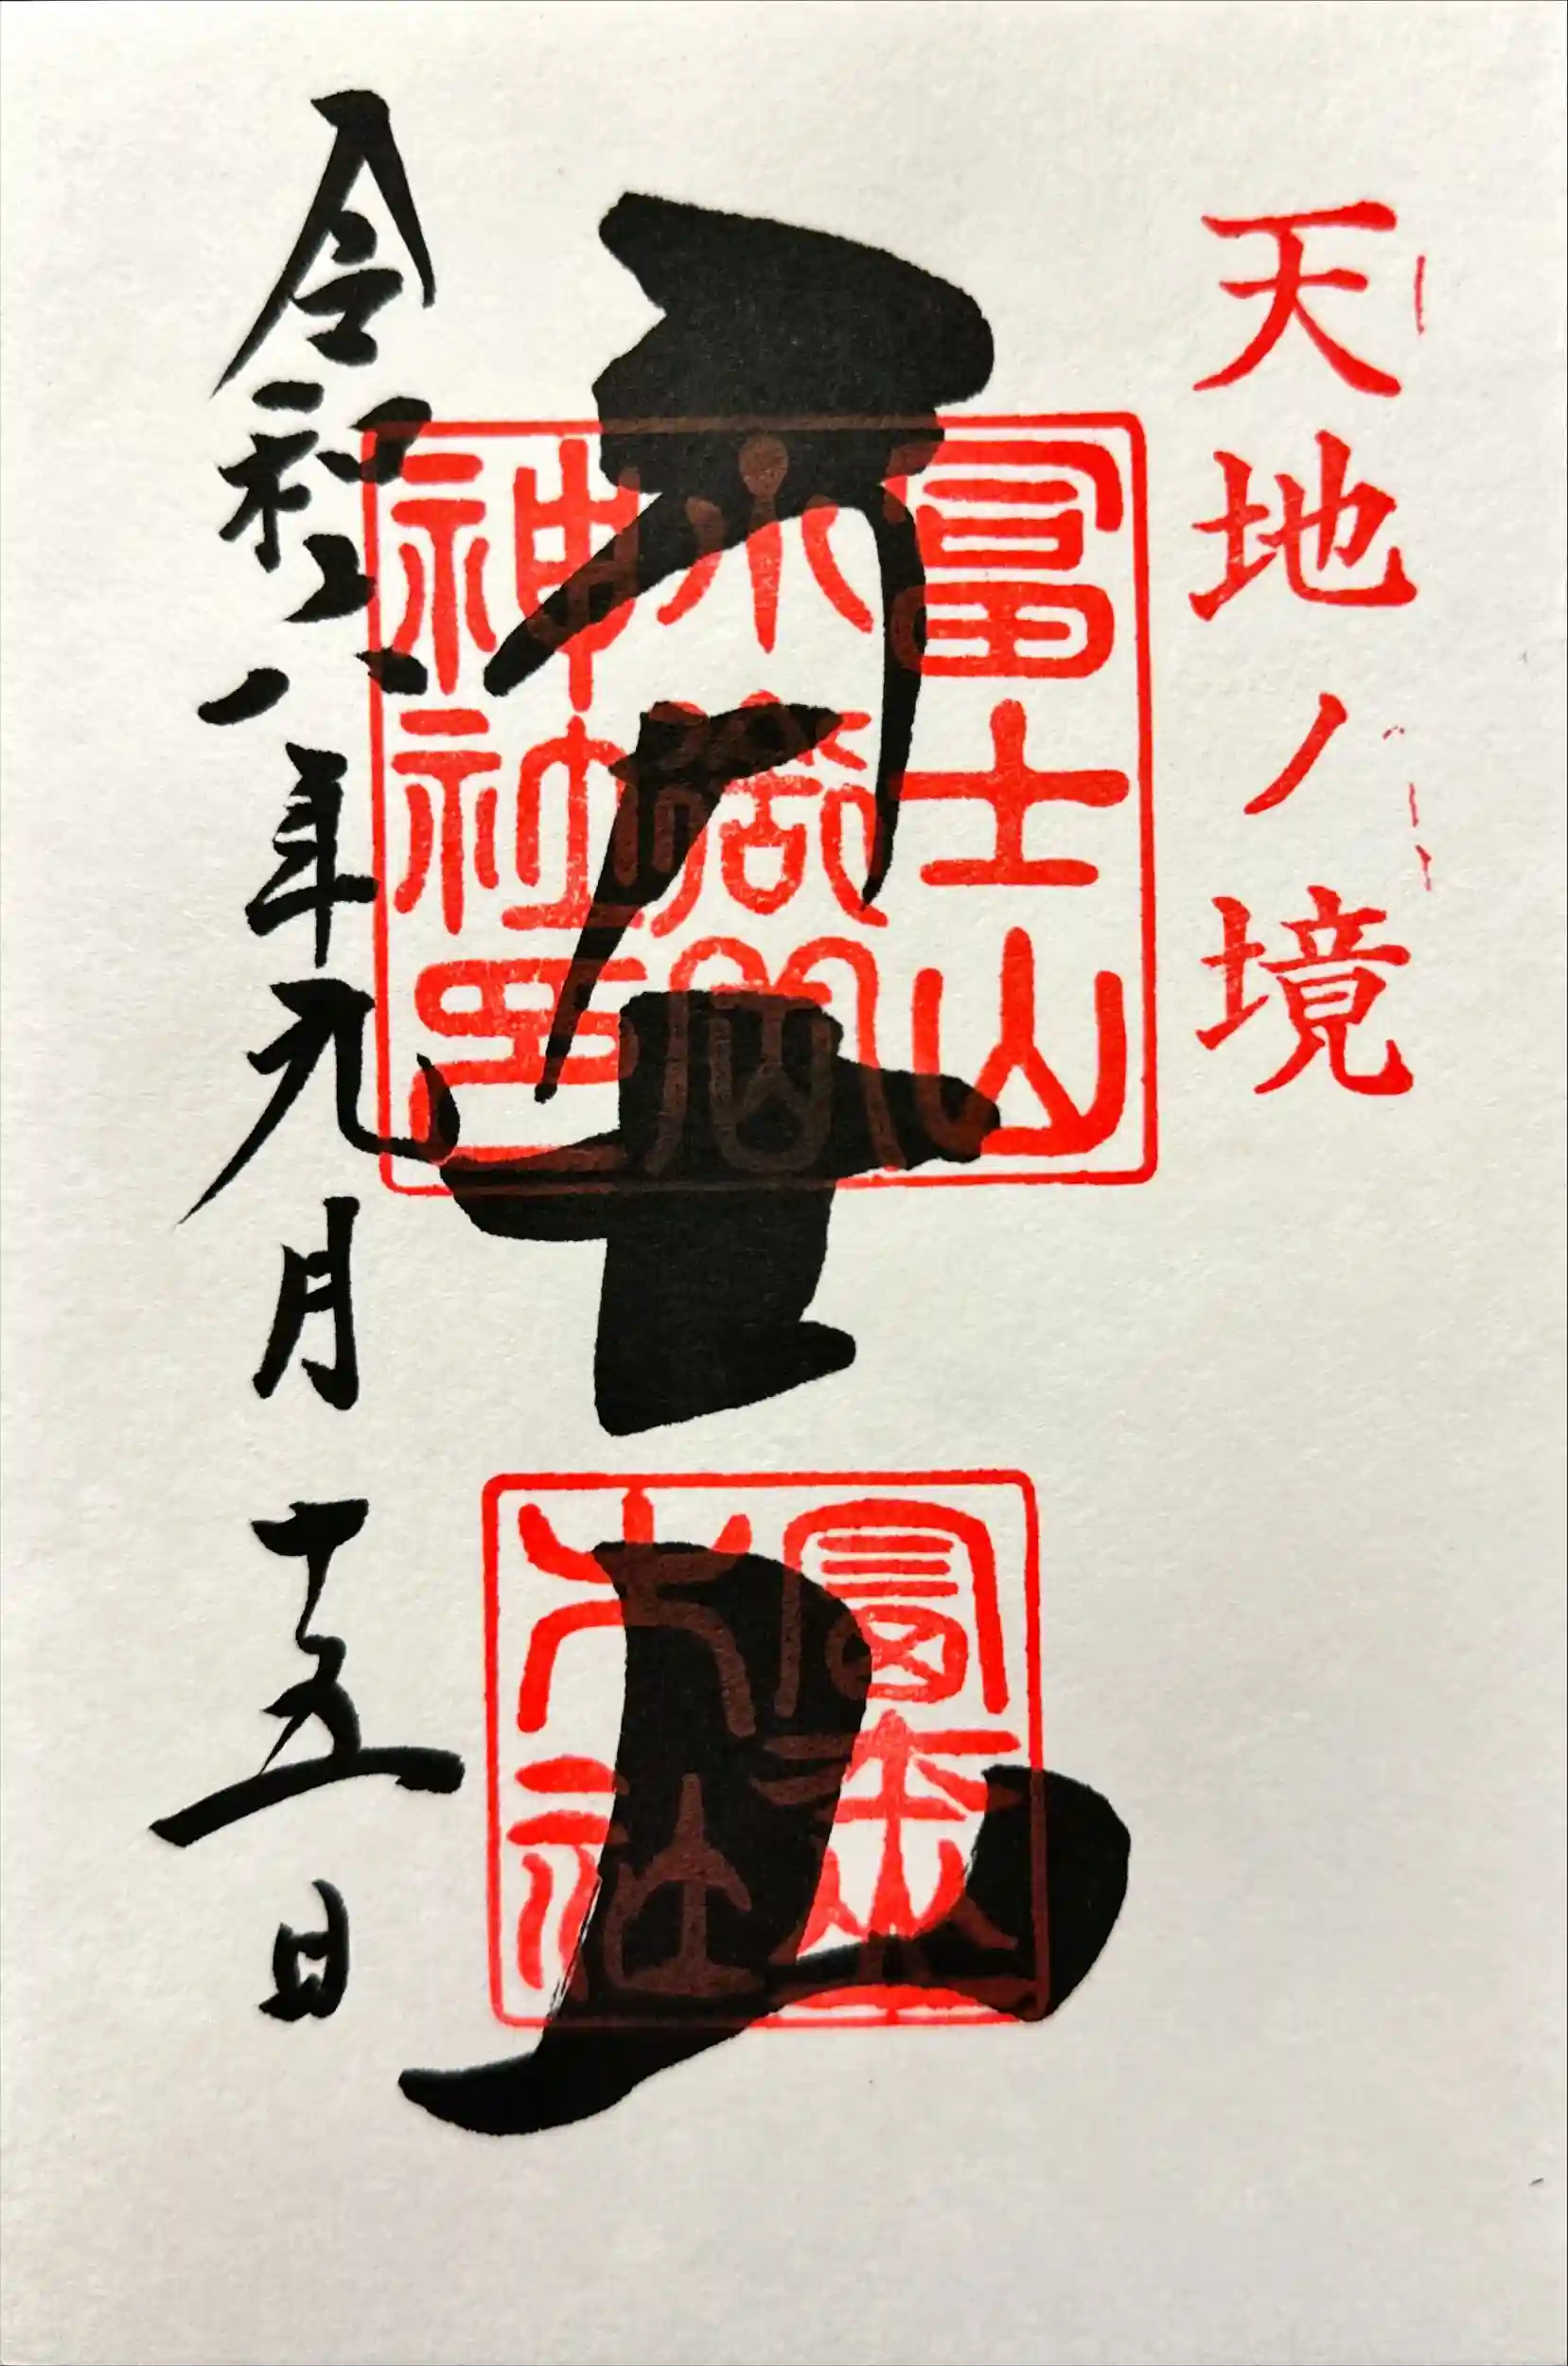 天地ノ境
冨士山
冨士山
小御嶽
神社印
令和八年九月十五日